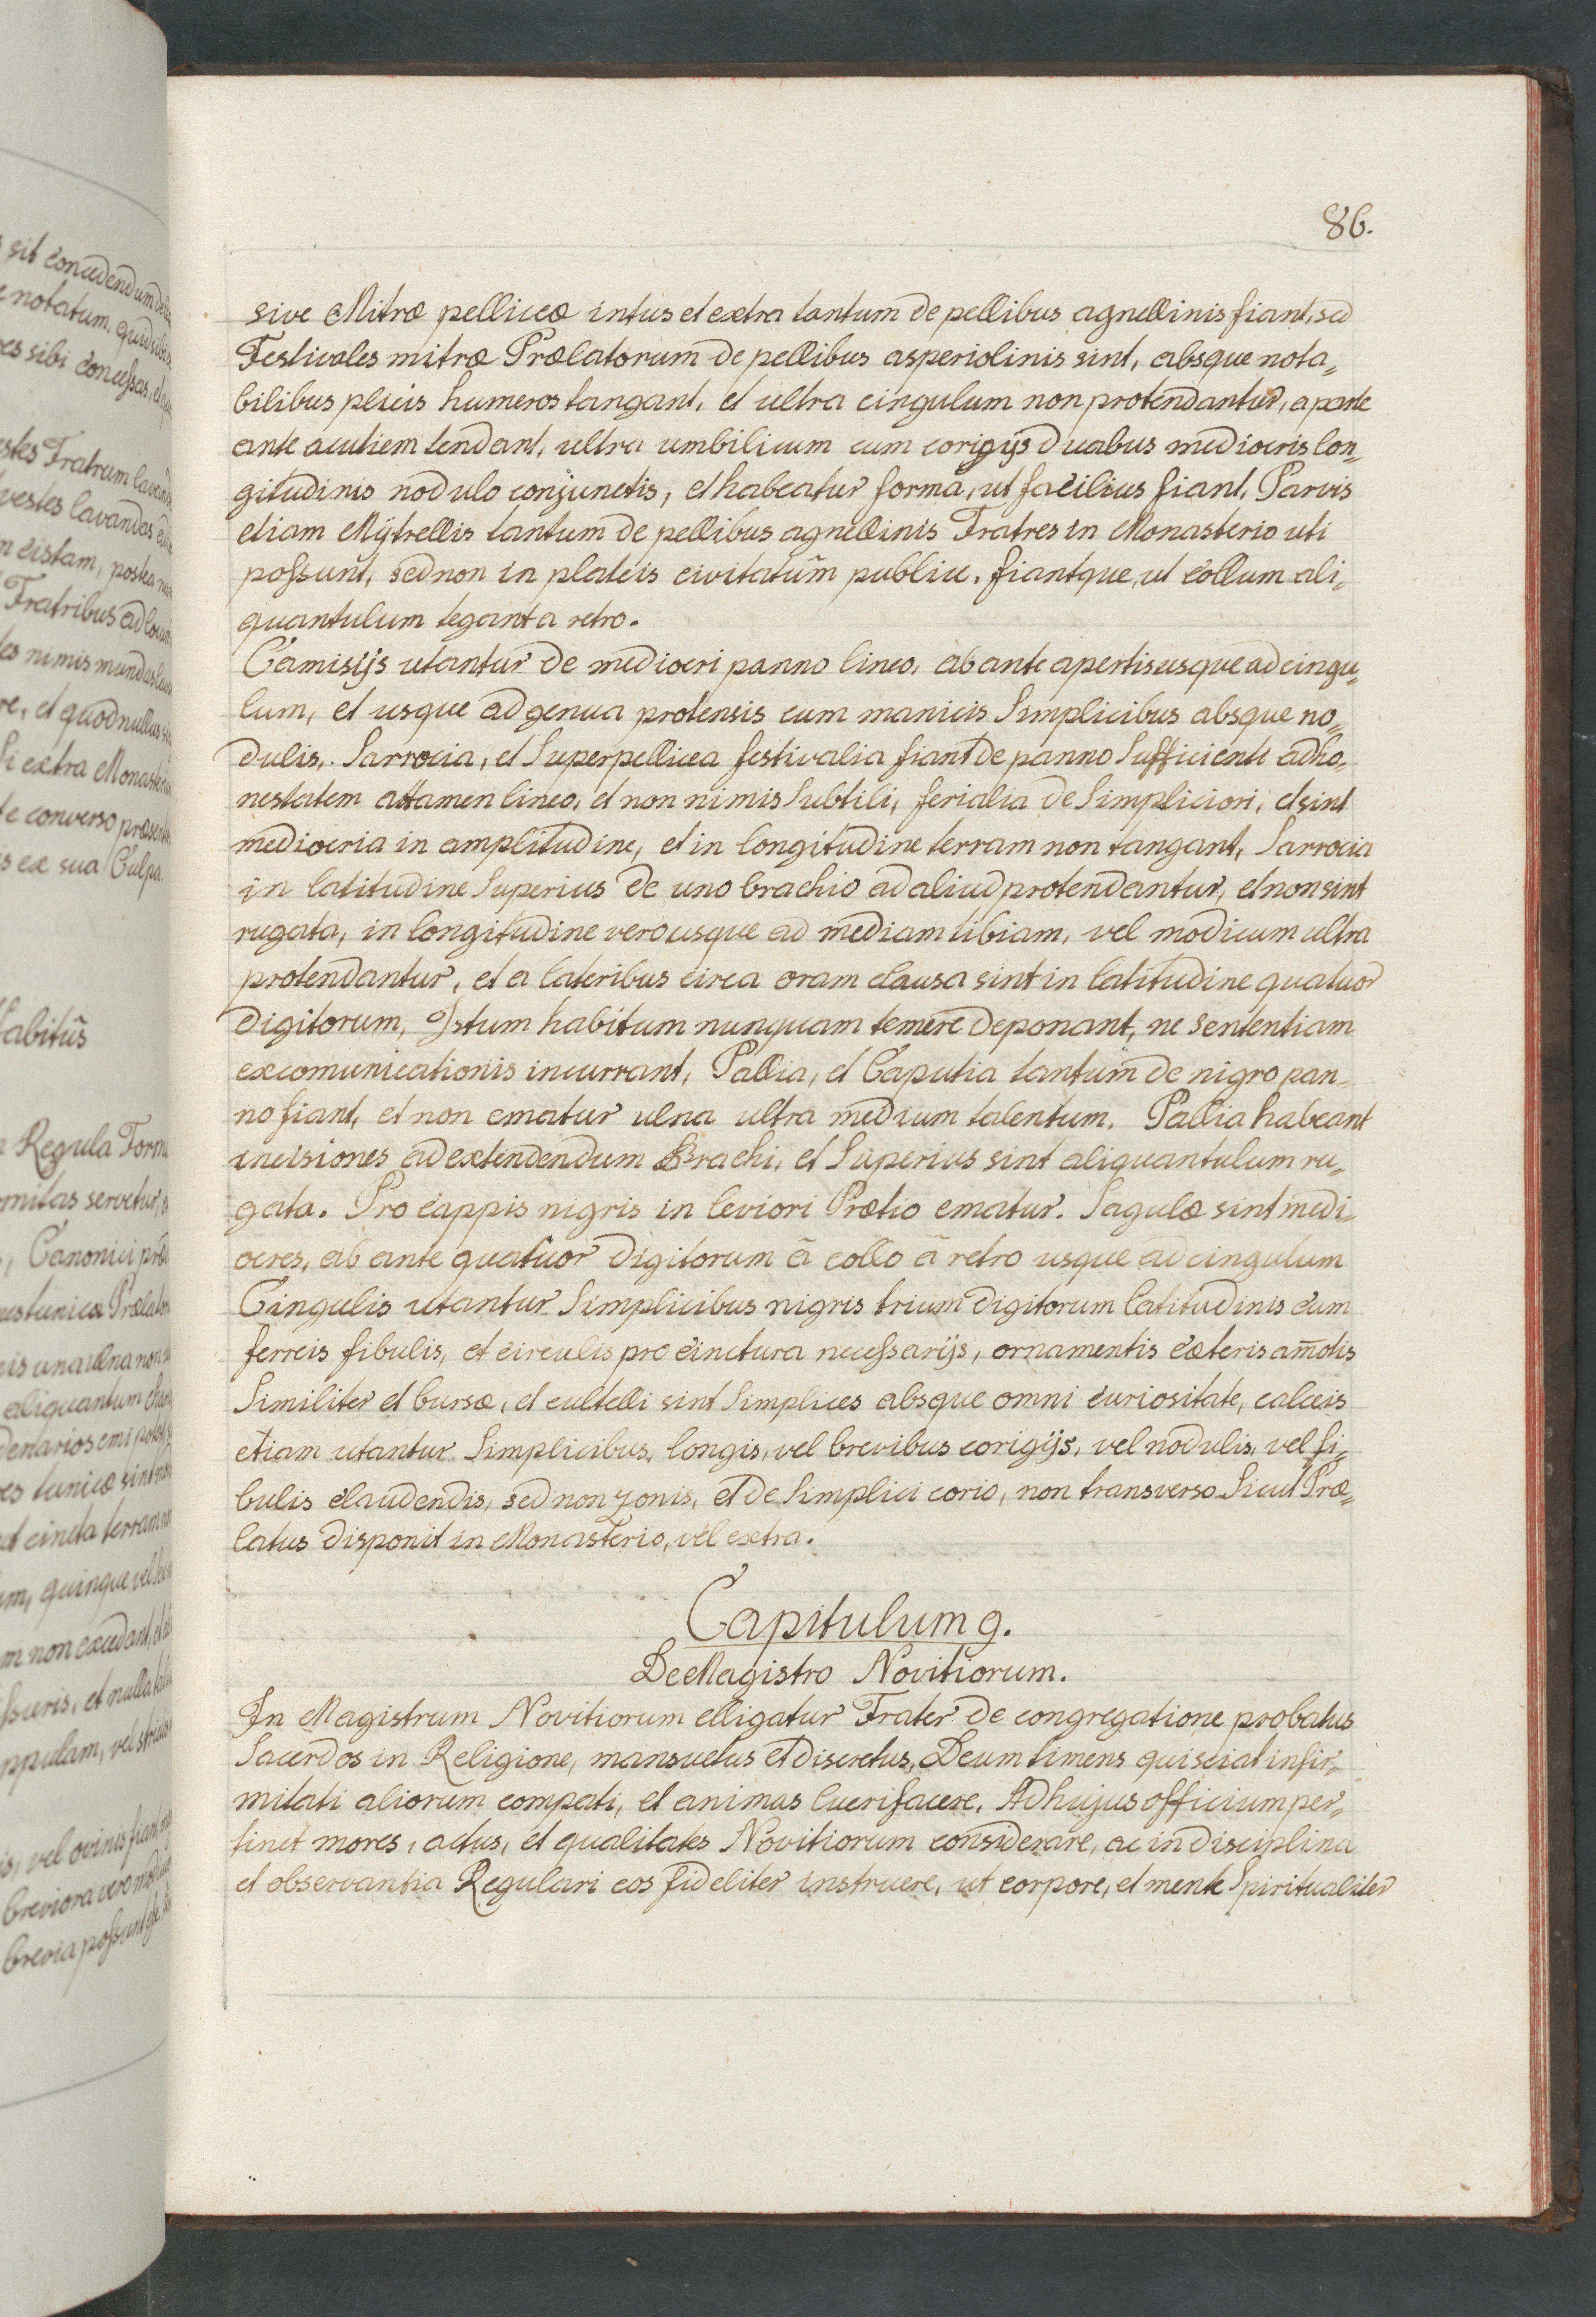 86.
sive Mitræ pelliceæ intus et extra tantum de pellibus agnellinis fiant, sed
Festivales mitræ Prælatorum de pellibus asperiolinis sint, absque nota„
bilibus plicis humeros tangant, et ultra cingulum non protendantur, a parte
ante acutiem tendant, ultra umbilicum cum corigijs duabus mediocris lon„
gitudinis nodulo conjunctis, et habeatur forma, ut facilius fiant, Parvis
etiam Mÿtrellis tantum de pellibus agnellinis Fratres in Monasterio uti
possunt, sed non in plateis civitatum publice, fiantque, ut collum ali„
quantulum tegant a retro.
Camisijs utantur de mediocri panno lineo, ab ante apertis usque ad cingu„
lum, et usque ad genua protensis cum manicis Simplicibus absque no„
dulis, Sarrocia, et Superpellicea festivalia fiant de panno Sufficiente ad ho„
nestatem attamen lineo, et non nimis Subtili, ferialia de Simpliciori, et sint
mediocria in amplitudine, et in longitudine terram non tangant, Sarrocia
in latitudine Superius de uno brachio ad aliud protendantur, et non sint
rugata, in longitudine vero usque ad mediam tibiam, vel modicum ultra
protendantur, et a lateribus circa oram clausa sint in latitudine quatuor
digitorum, Istum habitum nunquam temere deponant, ne sententiam
excomunicationis incurrant, Pallia, et Caputia tantum de nigro pan„
no fiant, et non ematur ulna ultra medium talentum. Pallia habeant
incisiones ad extendendum Brachi, et Superius sint aliquantulum ru„
gata. Pro cappis nigris in leviori Prætio ematur. Sagulæ sint medi„
ocres, ab ante quatuor digitorum ã collo ã retro usque ad cingulum
Cingulis utantur Simplicibus nigris trium digitorum latitudinis cum
ferreis fibulis, et circulis pro cinctura necessarijs, ornamentis cæteris am̄otis
Similiter et bursæ, et cultelli sint Simplices absque omni curiositate, calceis
etiam utantur Simplicibus, longis, vel brevibus corigijs, vel nodulis, vel fi„
bulis claudendis, sed non zonis, et de Simplici corio, non transverso Sicut Præ„
latus disponit in Monasterio, vel extra.
Capitulum 9.
De Magistro Novitiorum.
In Magistrum Novitiorum elligatur Frater de congregatione probatus
Sacerdos in Religione, mansuetus et discretus, Deum timens qui sciat infir„
mitati aliorum compati, et animas lucrifacere. Ad hujus officium per„
tinet mores, actus, et qualitates Novitiorum considerare, ac in disciplina
et observantia Regulari eos fideliter instruere, ut corpore, et mente Spiritualiter